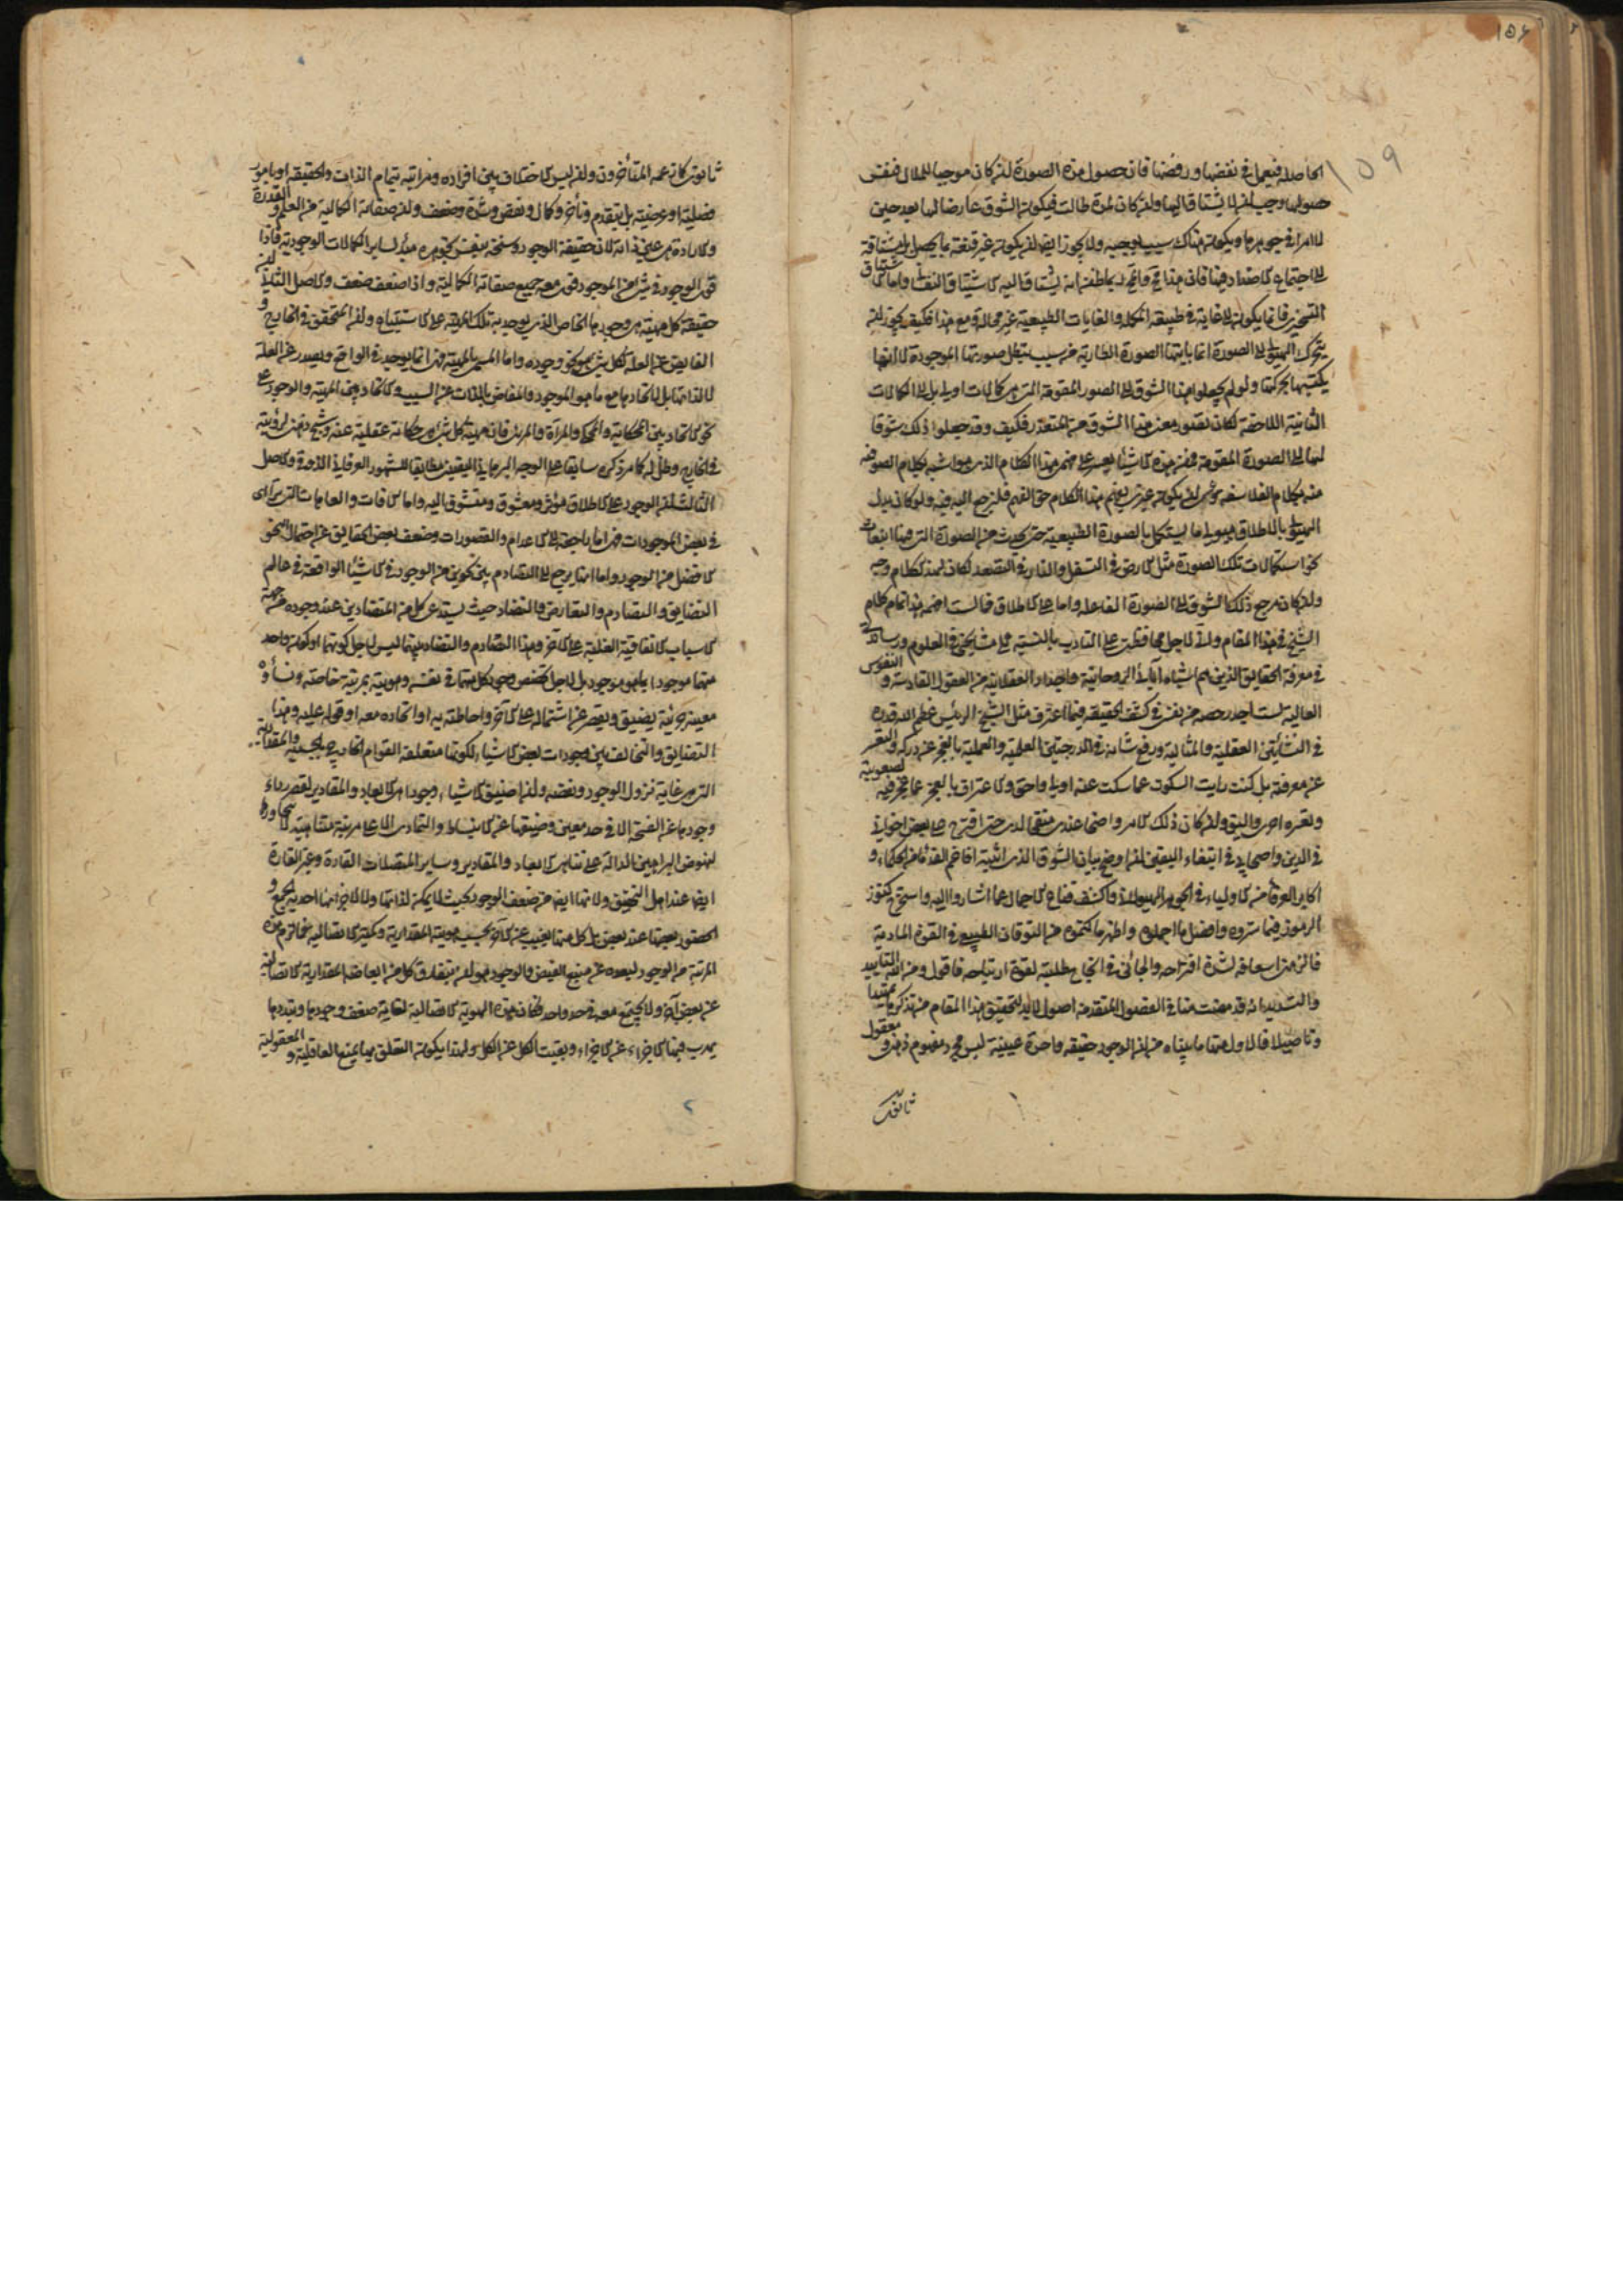 ١٥٩
الحاصله فيعمل فى نقضها ورفضها فان حصول هذه الصورة ان كان موجبا للملال فنفس
حصولها وجب ان لا يشتاق اليها وان كان لمدة طالت فيكون الشوق عارضا لها بعد حين
لا امرا فى جوهرها ويكون هناك سبب يوجبه ولا يجوز ايضا ان يكون غير قنعة بما يحصل بل مشتاقة
الى اجتماع الاضداد فيها فان هذا مح والمحال ربما ظن انه يشتاق اليه الاشتياق النفسانى واما الاشتياق
التسخيرى فانما يكون الى غاية فى طبيعة المكملة والغايات الطبيعية غير محالة ومع هذا فكيف يجوز ان
يتحرك الهيولى الى الصورة انما ياتيها الصورة الطارية من سبب يبطل صورتها الموجودة لا انها
يكتسبها بحركتها ولو لم يجعلوا هذا الشوق الى الصور المقومة التى هى كمالات اولى بل الى الكمالات
الثانية اللاحقة لكان تصور معنى هذا الشوق من المتعذر فكيف وقد جعلوا ذلك شوقا
لها الى الصورة المقومة فمن هذه الاشياء يعسر على فهم هذا الكلام الذى هو اشبه بكلام الصوفيه
منه بكلام الفلاسفه وعسى ان يكون غيرى يفهم هذا الكلام حق الفهم فليرجع اليه فيه ولو كان بدل
الهيولى بالاطلاق هيولى ما يستكمل بالصورة الطبيعية حتى يحدث من الصورة التى فيها انبعاث
نحو استكمالات تلك الصورة مثل الارض فى التسفل والنار فى التصعد لكان لهذا الكلام وجه
وان كان مرجع ذلك الشوق الى الصورة الفاعله واما على الاطلاق فالست افهمه هذا تمام كلام
الشيخ فى هذا المقام وانى لاجل محافظتى على التادب بالنسبة الى مشايخى فى العلوم واساتيدى
فى معرفة الحقايق الذين هم اشباه آبائى الروحانية واجدادى العقلانية من العقول القادسة والنفوس
العالية لست اجد رخصه من نفسى فى كشف الحقيقه فيما اعترف مثل الشيخ الرئيس عظم الله قدره
فى النشأتين العقلية والمثالية ورفع شانه فى الدرجتين العلمية والعملية بالعجز عن دركه والتعسر
عن معرفته بل كنت رايت السكوت عما سكت عنه اولى واحق والاعتراف بالعجز عما عجز فيه لصعوبته
وتعسره احرى واليق وان كان ذلك الامر واضحا عندى منقحا لدى حتى اقترح على بعض اخوانى
فى الدين واصحابى فى ابتغاء اليقين ان اوضح بيان الشوق الذى اثبته افاخم القدماء من الحكماء و
اكابر العرفاء من الاولياء فى الجوهر الهيولانى واكشف قناع الاجمال عما اشاروا اليه واستخرج كنوز
الرموز فيما ستروه وافصل ما اجملوه واظهر ما كتموه من التوقان الطبيعى فى القوة المادية
فالزمنى اسعافه لشدة اقتراحه والجأنى فى انجاح طلبته لقوة ارتياحه فاقول ومن الله التاييد
والتسديد انه قد مضت منا فى الفصول المتقدمة اصول لابد لتحقيق هذا المقام من تذكرها تمهيدا
وتاصيلا فالاول منها ما بيناه من ان الوجود حقيقه واحدة عينية ليس مجرد مفهوم ذهنى ومعقول
ثانوى
ثانوى كما زعمه المتأخرون وان ليس الاختلاف بين افراده ومراتبه بتمام الذات والحقيقه او بامور
فصلية او عرضية بل بتقدم وتأخر وكمال ونقص وشدة وضعف وان صفاته الكمالية من العلم والقدرة
والارادة هى عين ذاته لان حقيقة الوجود وسنخه بنفس تجوهره مبدأ لساير الكمالات الوجودية فاذا
قوى الوجود فى شئ من الموجود قوى معه جميع صفاته الكمالية واذا ضعف ضعف والاصل الثانى ان
حقيقة كل مهية هى وجودها الخاص الذى يوجد به تلك المهية على الاستتباع وان المتحقق فى الخارج و
الفايض عن العلة لكل شئ هو نحو وجوده واما المسمى بالمهية فهى انما توجد فى الواقع ويصدر عن العلة
لا لذاتها بل لاتحادها مع ما هو الموجود والمفاض بالذات عن السبب والاتحاد بين المهية والوجود على
نحو الاتحاد بين الحكاية والمحكى والمرآة والمرئى فان مهية كل شئ هى حكاية عقلية عنه وشبح ذهنى لرؤيته
فى الخارج وظل له كما مر ذكره سابقا على الوجه البرهانى اليقينى مطابقا للشهود العرفانى الذوقى والاصل
الثالث ان الوجود على الاطلاق مؤثر ومعشوق ومتشوق اليه واما الآفات والعاهات التى يترآى
فى بعض الموجودات فهى اما راجعة الى الاعدام والقصورات وضعف بعض الحقايق عن احتمال النحو
الافضل من الوجود واما انها يرجع الى التصادم بين نحوين من الوجود فى الاشياء الواقعة فى عالم
التضايق والتصادم والتعارض والتضاد حيث يستدعى كل من المتضادين عند وجوده من جهة
الاسباب الاتفاقية الغلبة على الآخر وهذا التصادم والتضاد بينهما ليس لاجل كونهما او كون واحد
منهما موجودا بما هو موجود بل لاجل تخصص وجود كل منهما فى نفسه وهويته بمرتبة خاصة ونشأة
معينة جزئية يضيق ويقصر عن اشتماله على الآخر واحاطته به او اتحاده معه او قوله عليه وهذا
التضايق والتخالف بين وجودات بعض الاشياء لكونها متعلقة القوام الخارجى بالجسمية والمقدارية
التى هى غاية نزول الوجود ونقصه وان اضيق الاشياء وجودا هى الابعاد والمقادير لقصر رداء
وجودها عن الفسحة الا فى حد معين وضيقها عن الانبساط والتمادى الا على مرتبة متناهية لا يتجاوزها
لنهوض البراهين الدالة على تناهى الابعاد والمقادير وساير المتصلات القارة وغير القارة
ايضا عند اهل التحقيق ولانها ايضا من ضعف الوجود بحيث لا يمكن لذاتها ولا لاجزائها احدية الجمع و
الحضور بعضها عند بعض بل كل منها يغيب عن الآخر بحسب هويته المقدارية وكثرته الاتصالية فما لزم هذه
المرتبة من الوجود لبعده عن منبع الفيض والوجود هو ان يتفارق كل من ابعاضه المقدارية الاتصالية
عن بعض آخر ولا يجتمع معه فى حد واحد فكان هذه الهوية الاتصالية لغاية ضعف وجودها وتبددها
يهرب فيها الاجزاء عن الاجزاء ويغيب الكل عن الكل ولهذا يكون التعلق بها يمنع العاقلية والمعقولية